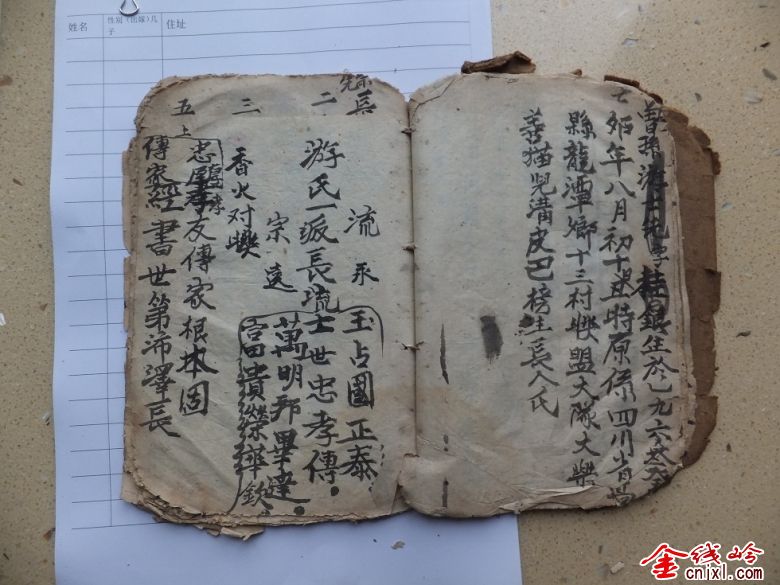 姓名
性别（出嫁）几子
住址
曾孫游士 字桂銀生於一九六六
年八月初十 時原係四川省
縣龍潭鄉十三村聯盟大隊大
善猫児溝皮巴榜生長人氏
二 三 五
流 永 玉占國正泰
游氏一派長流士世忠孝傳
宗 遠 萬明邦畢達
富貴榮華欽
香火对聯
上
忠厚孝友傳家根本固
傳家經書世第沛澤長
金线岭
cnlxl.com